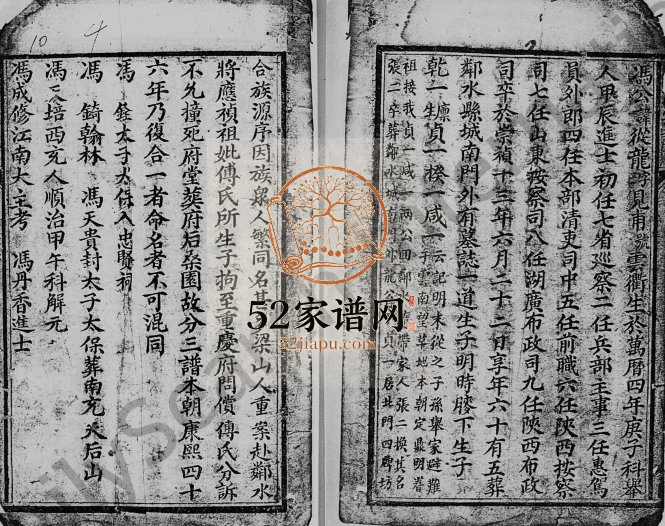 馮公諱從龍字見甫號雲衢生於萬曆四年庚子科舉
人甲辰進士初任七省巡察二任兵部主事三任惠
員外郎四任本部清吏司中五任前職六任陝西按察
司七任山東按察司八任湖廣布政司九任陝西布政
司卒於崇禎十三年六月二十二日享年六十有五葬
鄰水縣城南門外有墓誌一道生子明時膝下生子
乾一生貞一楱一咸一
云記明末從之子孫舉家避難
子雲南望草地本朝定鼎明睿
祖接我貞一咸一兩公回鄰水
帶家人張二換其名
張二卒葬鄰水城南門外
貞一居北門四牌坊
合族源序因族眾人繁同名
梁山人重案赴鄰水
將應禎祖妣傅氏所生子拘至重慶府問償傅氏分訴
不允撞死府堂葬府后桑園故分三譜本朝康熙四十
六年乃復合一者命名者不可混同
馮 銓太子太保入忠賢祠
馮 錡翰林 馮天貴封太子太保葬南充天后山
馮天培西充人順治甲午科解元
馮成修江南大主考 馮丹香進士
10
2
52家谱网
52jiapu.com